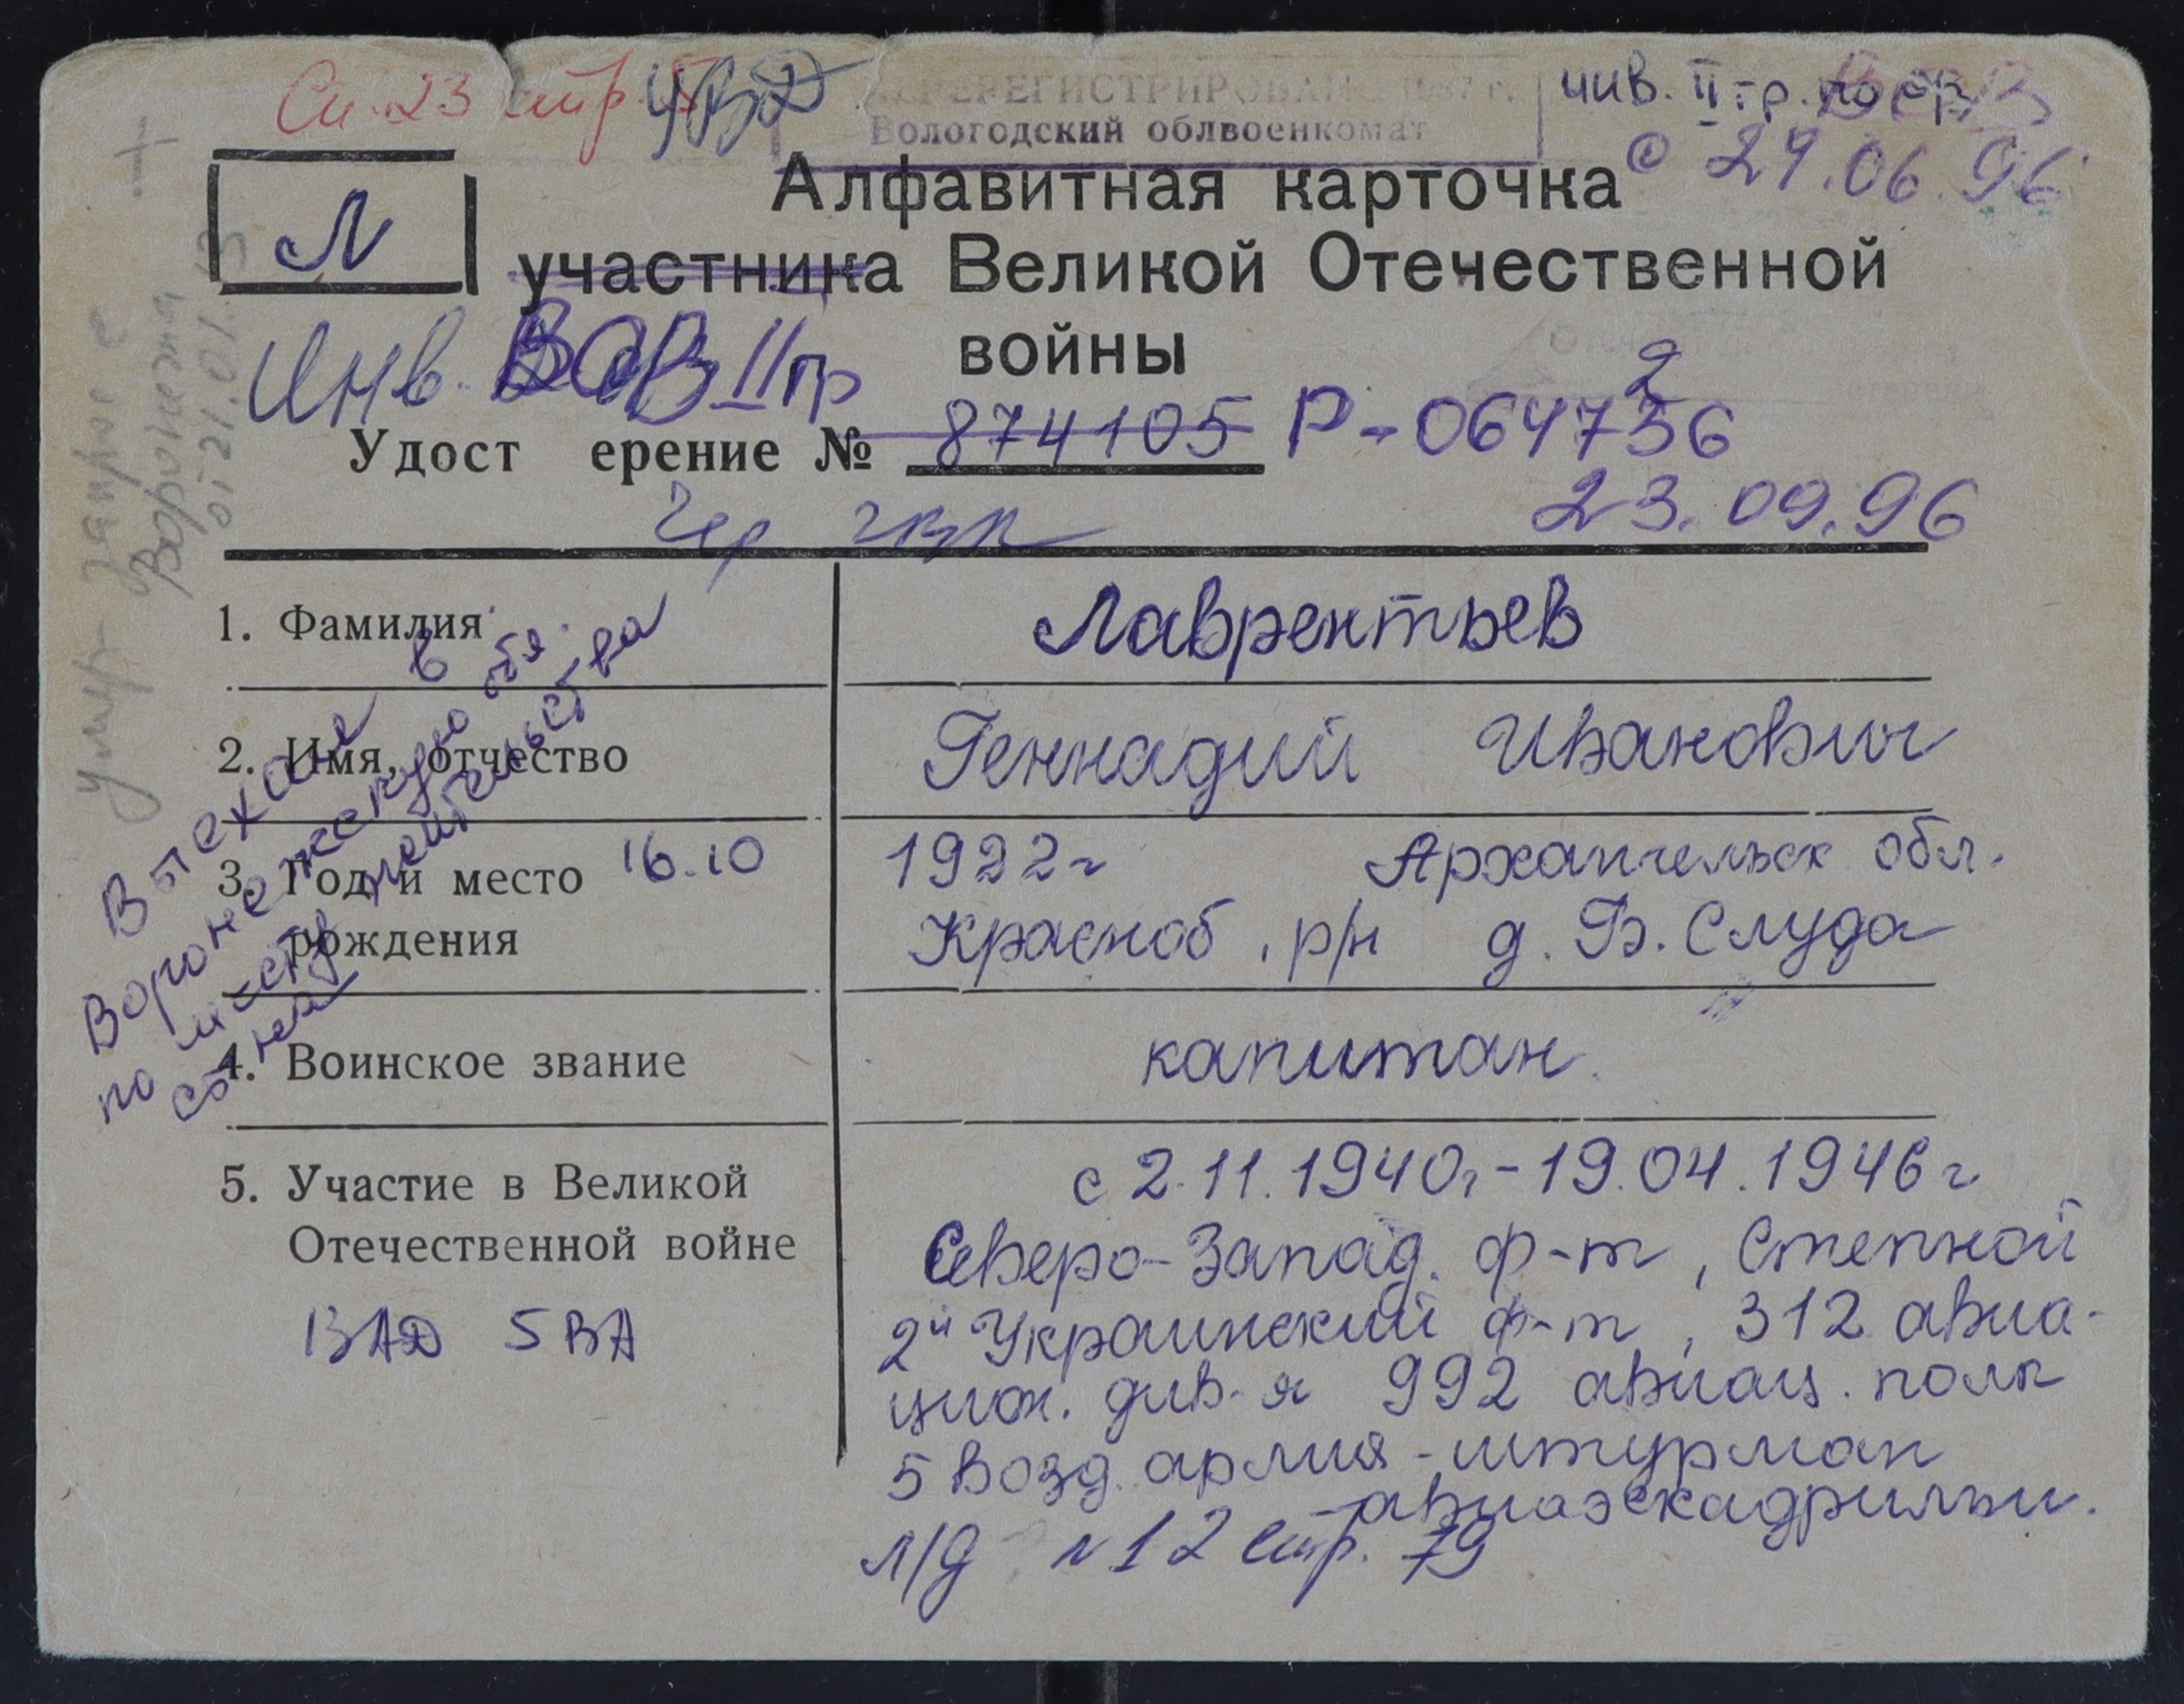 См. 23 стр. 5 УВД
ПЕРЕРЕГИСТРИРОВАНО 1987 г.
Вологодский облвоенкомат
инв. II гр. по
с 24.06.96
Л
Алфавитная карточка
участника Великой Отечественной
войны
Инв. ВОВ II гр
Удост ерение № 874105 Р-064736
2
23.09.96
1. Фамилия Лаврентьев
2. Имя, отчество Геннадий Иванович
3. Год и место 16.10 1922 г Архангельск обл.
рождения Красноб. р/н д. Б. Слуда
4. Воинское звание капитан.
5. Участие в Великой с 2.11.1940г-19.04.1946 г
Отечественной войне Северо-Запад. ф-т, Степной
2й Украинский ф-т, 312 авиа-
ВАД 5 ВА
цион. див-я 992 авиац. полк
5 возд. армия - штурман
авиаэскадрильи.
л/д № 12 стр. 79
Выехал в
Воронежскую обл.
по месту жительства
сына
умер запрос с
Воронежа
от 21.01.13